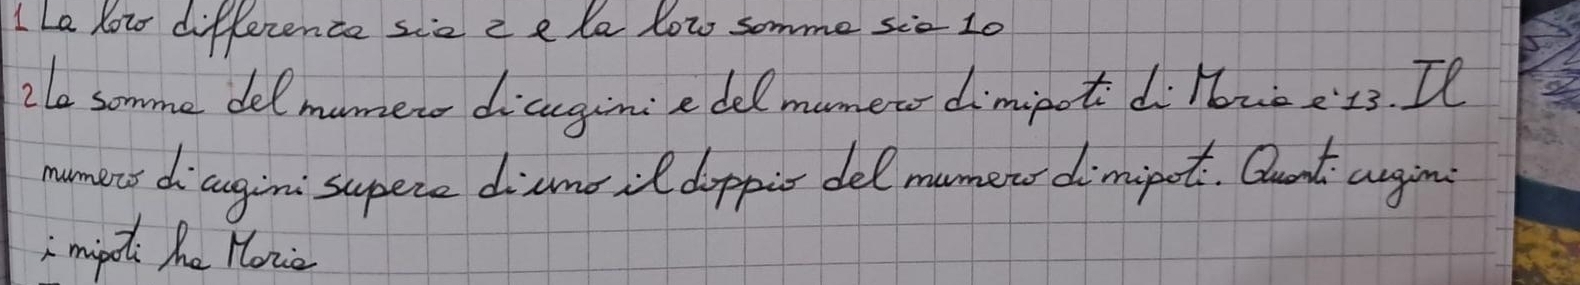 1 La loro differenza sia 2 e la loro somma sia 10
2 La somma del numero di cugini e del numero di nipoti di Maria e' 13. Il
numero di cugini supera di uno il doppio del numero di nipoti. Quanti cugini
i nipoti ha Maria